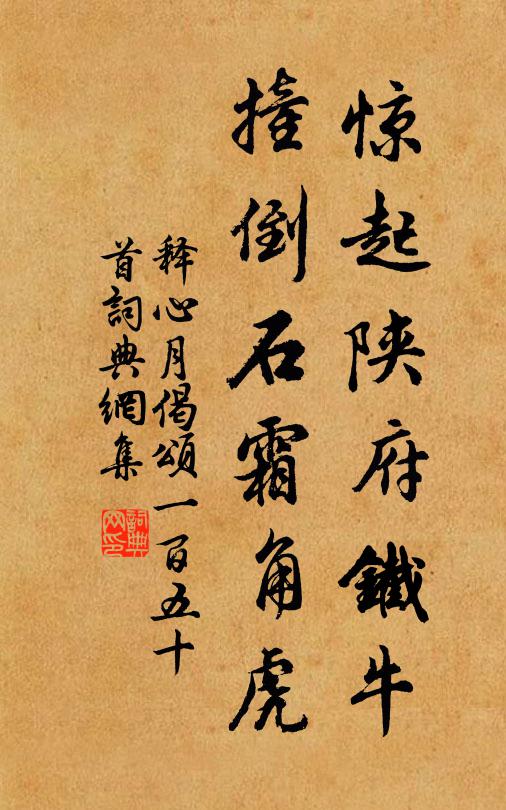 惊起陕府鐵牛
撞倒石霜角虎
释心月偈頌一百五十
首詞典網集
詞典
网印